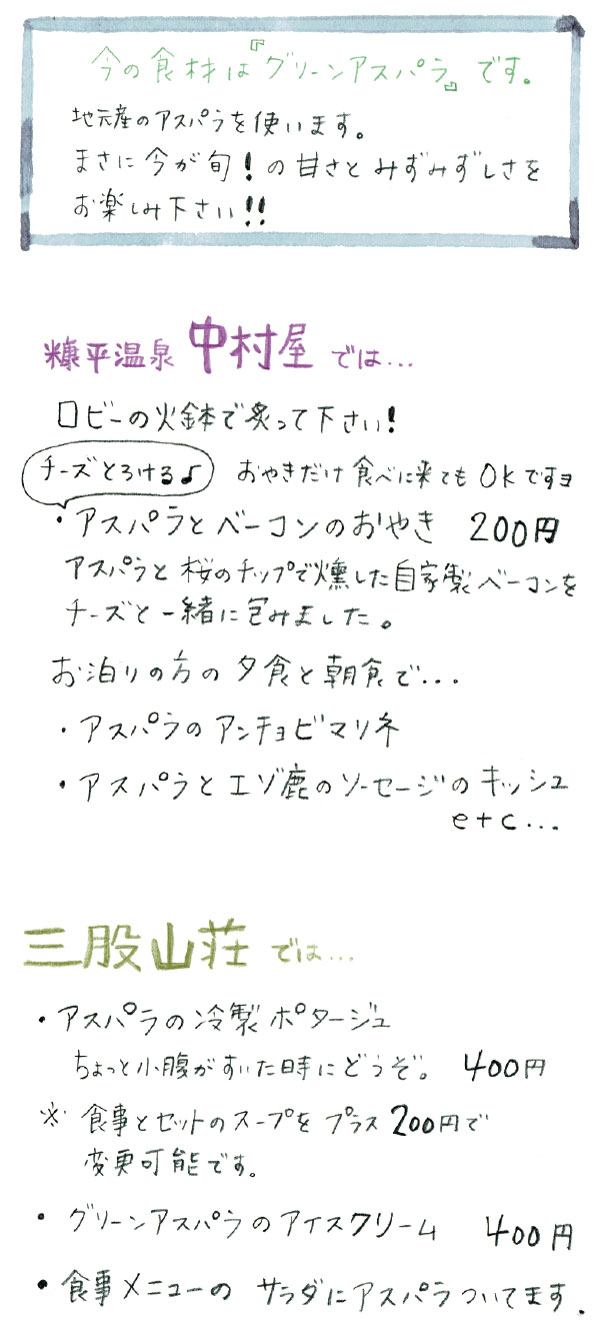 今の食材は『グリーンアスパラ』です。
地元産のアスパラを使います。
まさに今が旬!の甘さとみずみずしさを
お楽しみ下さい!!
糠平温泉 中村屋 では…
ロビーの火鉢で炙って下さい!
チーズとろける♪ おやきだけ食べに来てもOKですヨ
・アスパラとベーコンのおやき 200円
アスパラと桜のチップで燻した自家製ベーコンを
チーズと一緒に包みました。
お泊りの方の夕食と朝食で…
・アスパラのアンチョビマリネ
・アスパラとエゾ鹿のソーセージのキッシュ
etc...
三股山荘 では…
・アスパラの冷製ポタージュ
ちょっと小腹がすいた時にどうぞ。 400円
※ 食事とセットのスープをプラス200円で
変更可能です。
・グリーンアスパラのアイスクリーム 400円
・食事メニューの サラダにアスパラついてます.